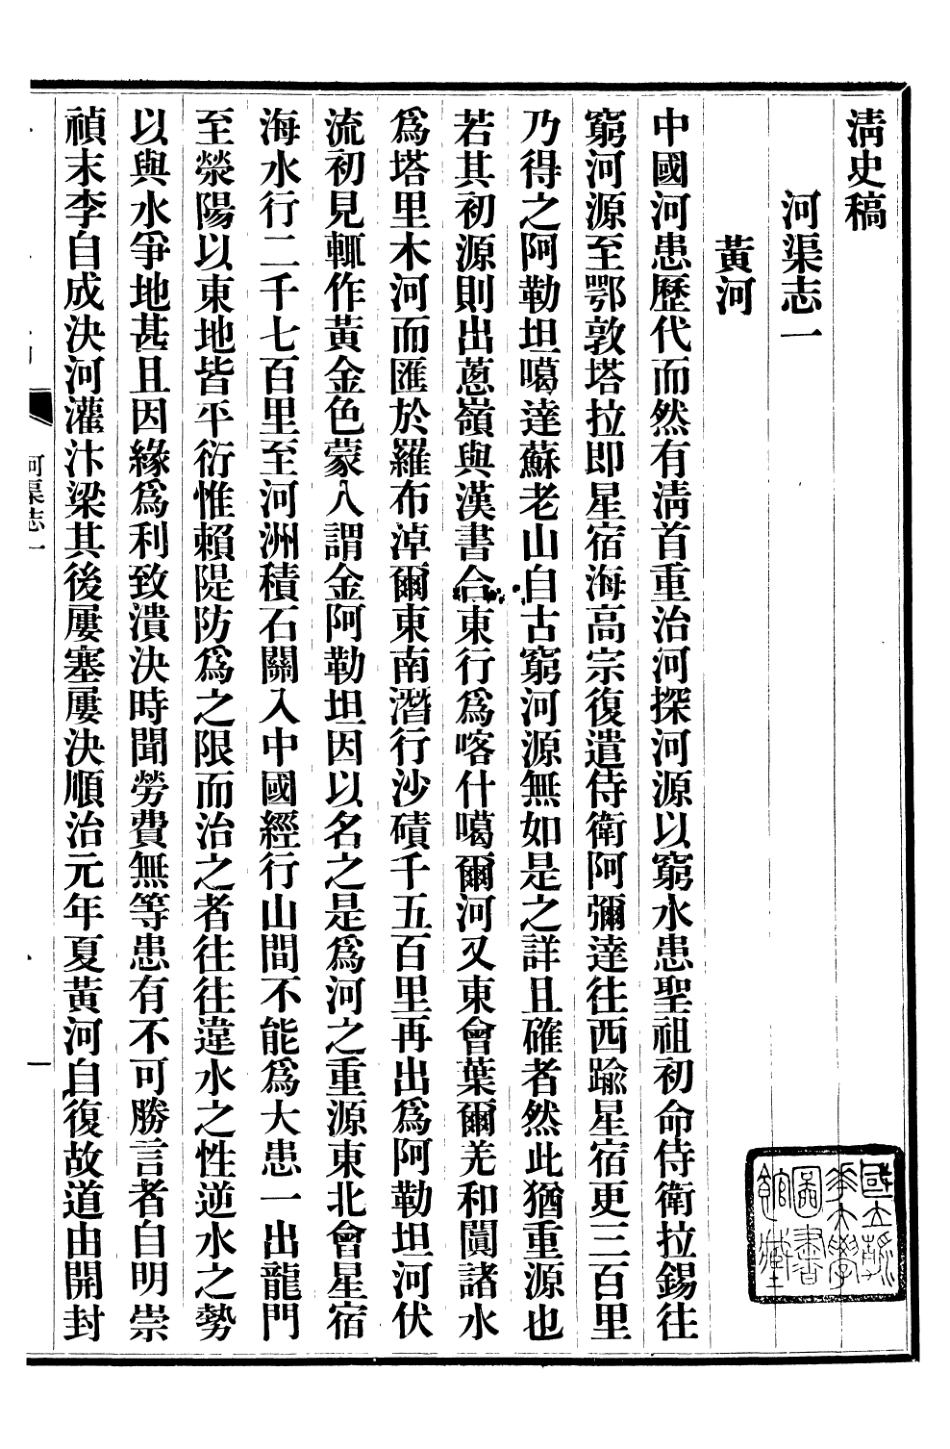 清史稿
河渠志一
黃河
中國河患歷代而然有清首重治河探河源以窮水患聖祖初命侍衛拉錫往
窮河源至鄂敦塔拉即星宿海高宗復遣侍衛阿彌達往西踰星宿更三百里
乃得之阿勒坦噶達蘇老山自古窮河源無如是之詳且確者然此猶重源也
若其初源則出蔥嶺與漢書合東行爲喀什噶爾河又東會葉爾羌和闐諸水
爲塔里木河而匯於羅布淖爾東南潛行沙磧千五百里再出爲阿勒坦河伏
流初見輒作黃金色蒙人謂金阿勒坦因以名之是爲河之重源東北會星宿
海水行二千七百里至河洲積石關入中國經行山間不能爲大患一出龍門
至滎陽以東地皆平衍惟賴隄防爲之限而治之者往往違水之性逆水之勢
以與水爭地甚且因緣爲利致潰決時聞勞費無等患有不可勝言者自明崇
禎末李自成決河灌汴梁其後屢塞屢決順治元年夏黃河自復故道由開封
河渠志一
一
國立清
華大學
圖書
館藏